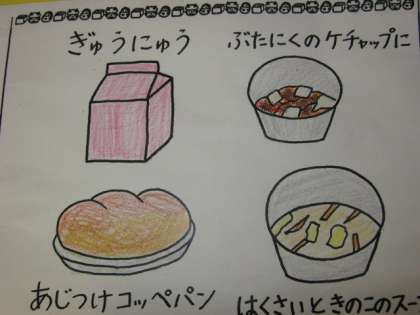 ぎゅうにゅう
ぶたにくのケチャップに
あじつけコッペパン
はくさいときのこのスー